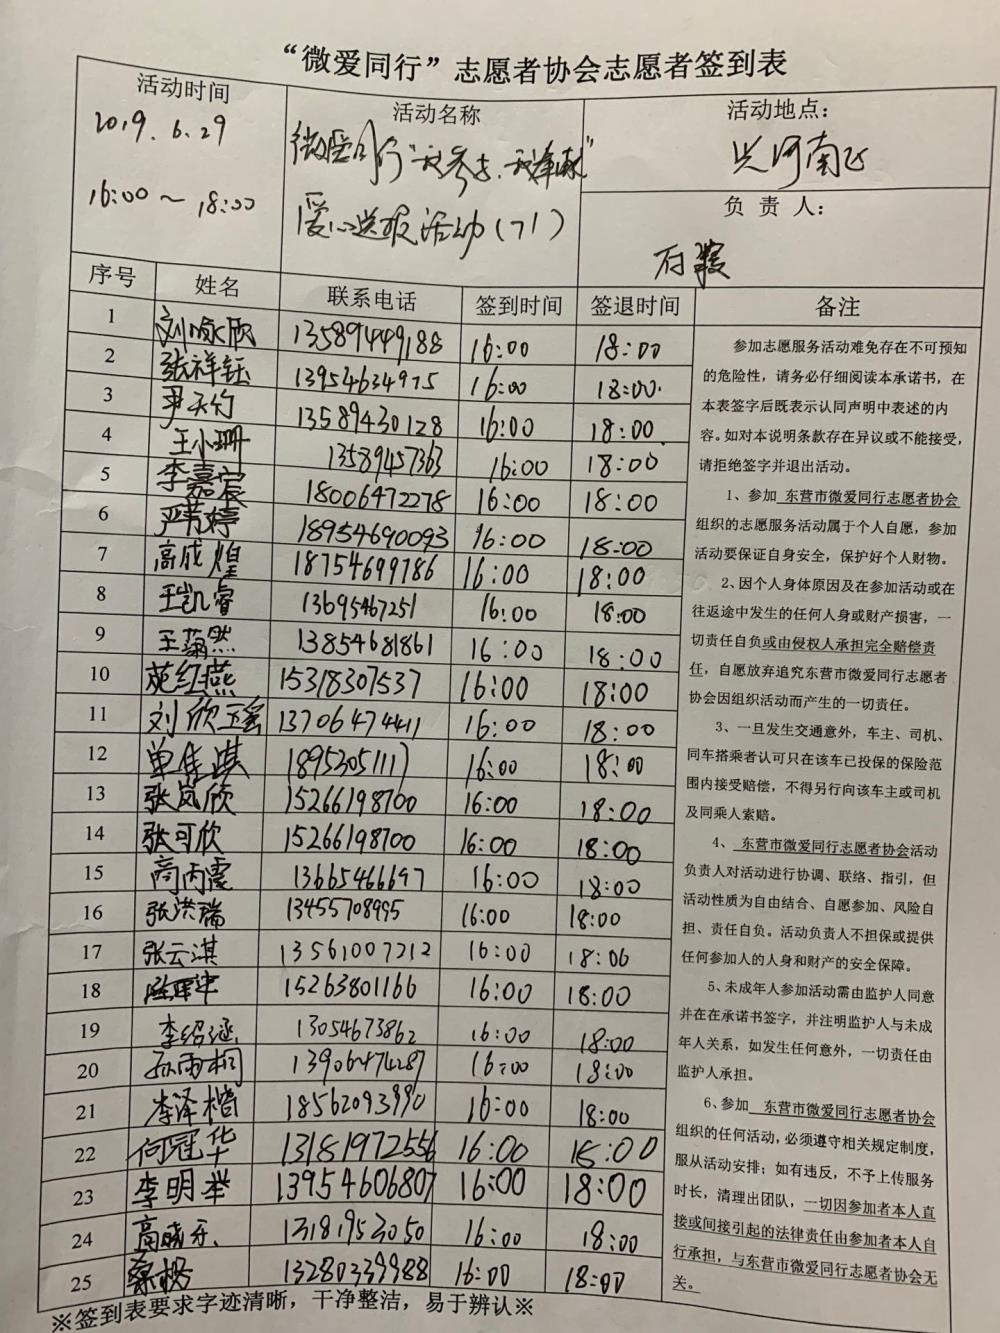 “微爱同行”志愿者协会志愿者签到表
活动时间
2019.6.29
16:00～18:00
活动名称
微爱同行“我参与、我奉献”
爱心送报活动（71）
活动地点：
河南
负责人：
序号 姓名 联系电话 签到时间 签退时间 备注
1 刘咏欣 13589449188 16:00 18:00
2 张祥钰 13954634975 16:00 18:00
3 尹天竹 13589430128 16:00 18:00
4 王小珊 13589457363 16:00 18:00
5 李嘉宸 18006472278 16:00 18:00
6 严芳婷 18954690093 16:00 18:00
7 高成煌 18754699786 16:00 18:00
8 王凯睿 13695467251 16:00 18:00
9 王蒴然 13854681861 16:00 18:00
10 苑红燕 15318307537 16:00 18:00
11 刘欣瑶 13706474411 16:00 18:00
12 单佳琪 18953051117 16:00 18:00
13 张岚欣 15266198700 16:00 18:00
14 张可欣 15266198700 16:00 18:00
15 高丙震 13665466697 16:00 18:00
16 张洪瑞 13455708995 16:00 18:00
17 张云淇 13561007212 16:00 18:00
18 15263801166 16:00 18:00
19 李绍涵 13054673862 16:00 18:00
20 孙雨桐 13906474287 16:00 18:00
21 李泽楷 18562093990 16:00 18:00
22 何冠华 13181972556 16:00 18:00
23 李明举 13954606807 16:00 18:00
24 高晓丹 13181953050 16:00 18:00
25 13280339988 16:00 18:00
参加志愿服务活动难免存在不可预知
的危险性，请务必仔细阅读本承诺书，在
本表签字后既表示认同声明中表述的内
容。如对本说明条款存在异议或不能接受，
请拒绝签字并退出活动。
1、参加 东营市微爱同行志愿者协会
组织的志愿服务活动属于个人自愿，参加
活动要保证自身安全，保护好个人财物。
2、因个人身体原因及在参加活动或在
往返途中发生的任何人身或财产损害，一
切责任自负或由侵权人承担完全赔偿责
任，自愿放弃追究东营市微爱同行志愿者
协会因组织活动而产生的一切责任。
3、一旦发生交通意外，车主、司机、
同车搭乘者认可只在该车已投保的保险范
围内接受赔偿，不得另行向该车主或司机
及同乘人索赔。
4、东营市微爱同行志愿者协会活动
负责人对活动进行协调、联络、指引，但
活动性质为自由结合、自愿参加、风险自
担、责任自负。活动负责人不担保或提供
任何参加人的人身和财产的安全保障。
5、未成年人参加活动需由监护人同意
并在在承诺书签字，并注明监护人与未成
年人关系，如发生任何意外，一切责任由
监护人承担。
6、参加 东营市微爱同行志愿者协会
组织的任何活动，必须遵守相关规定制度，
服从活动安排；如有违反，不予上传服务
时长，清理出团队，一切因参加者本人直
接或间接引起的法律责任由参加者本人自
行承担，与东营市微爱同行志愿者协会无
关。
※签到表要求字迹清晰，干净整洁，易于辨认※